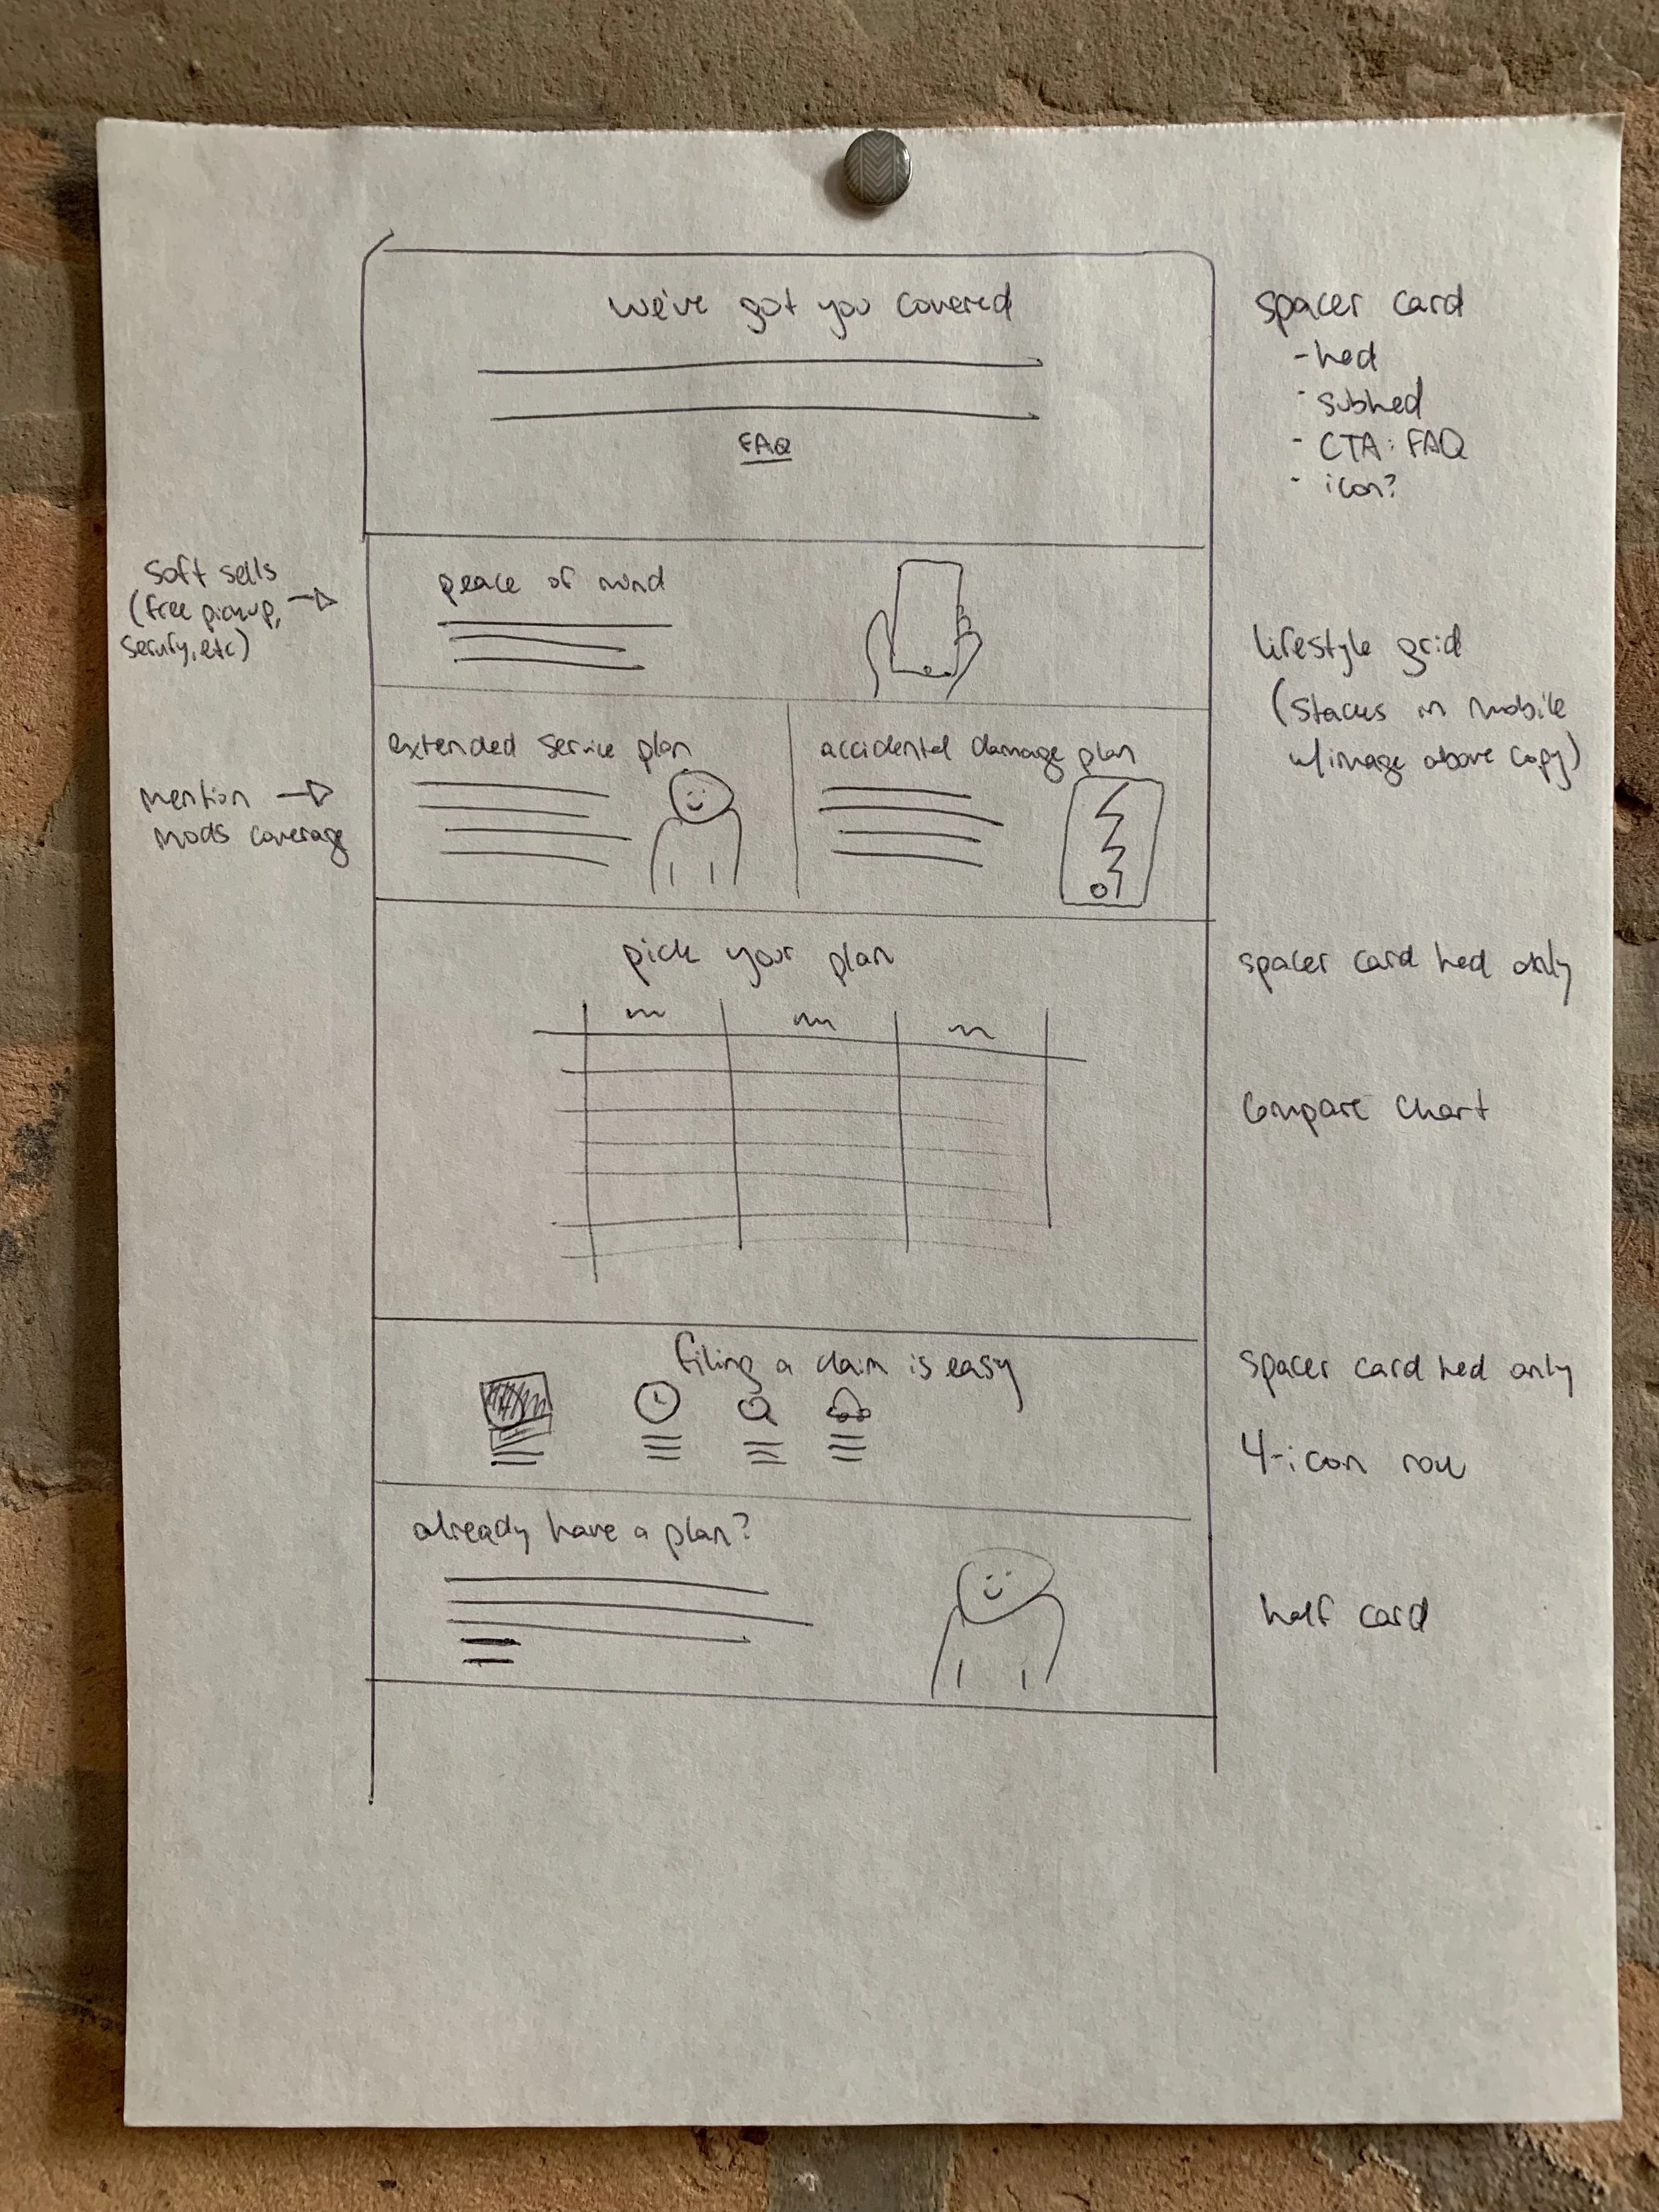 we've got you covered
FAQ
spacer card
- hed
- subhed
- CTA: FAQ
- icon?
soft sells
(free pickup,
peace of mind
lifestyle grid
(stacks in mobile
w/image above copy)
extended service plan
accidental damage plan
mention
mods coverage
pick your plan
spacer card hed only
compare chart
filing a claim is easy
spacer card hed only
4-icon row
already have a plan?
half card